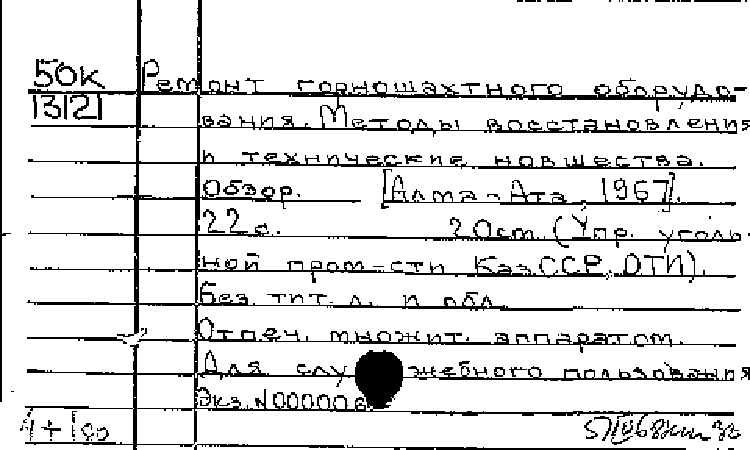 50к
13121
Ремонт горношахтного оборудо-
вания. Методы восстановления
и технические новшества.
Обзор. [Алма-Ата, 1967].
22 с. 20 см. (Упр. уголь-
ной пром-сти КазССР. ОТИ).
Без тит. л. и обл.
Отпеч. множит. аппаратом.
Для служебного пользования
Экз. N000006